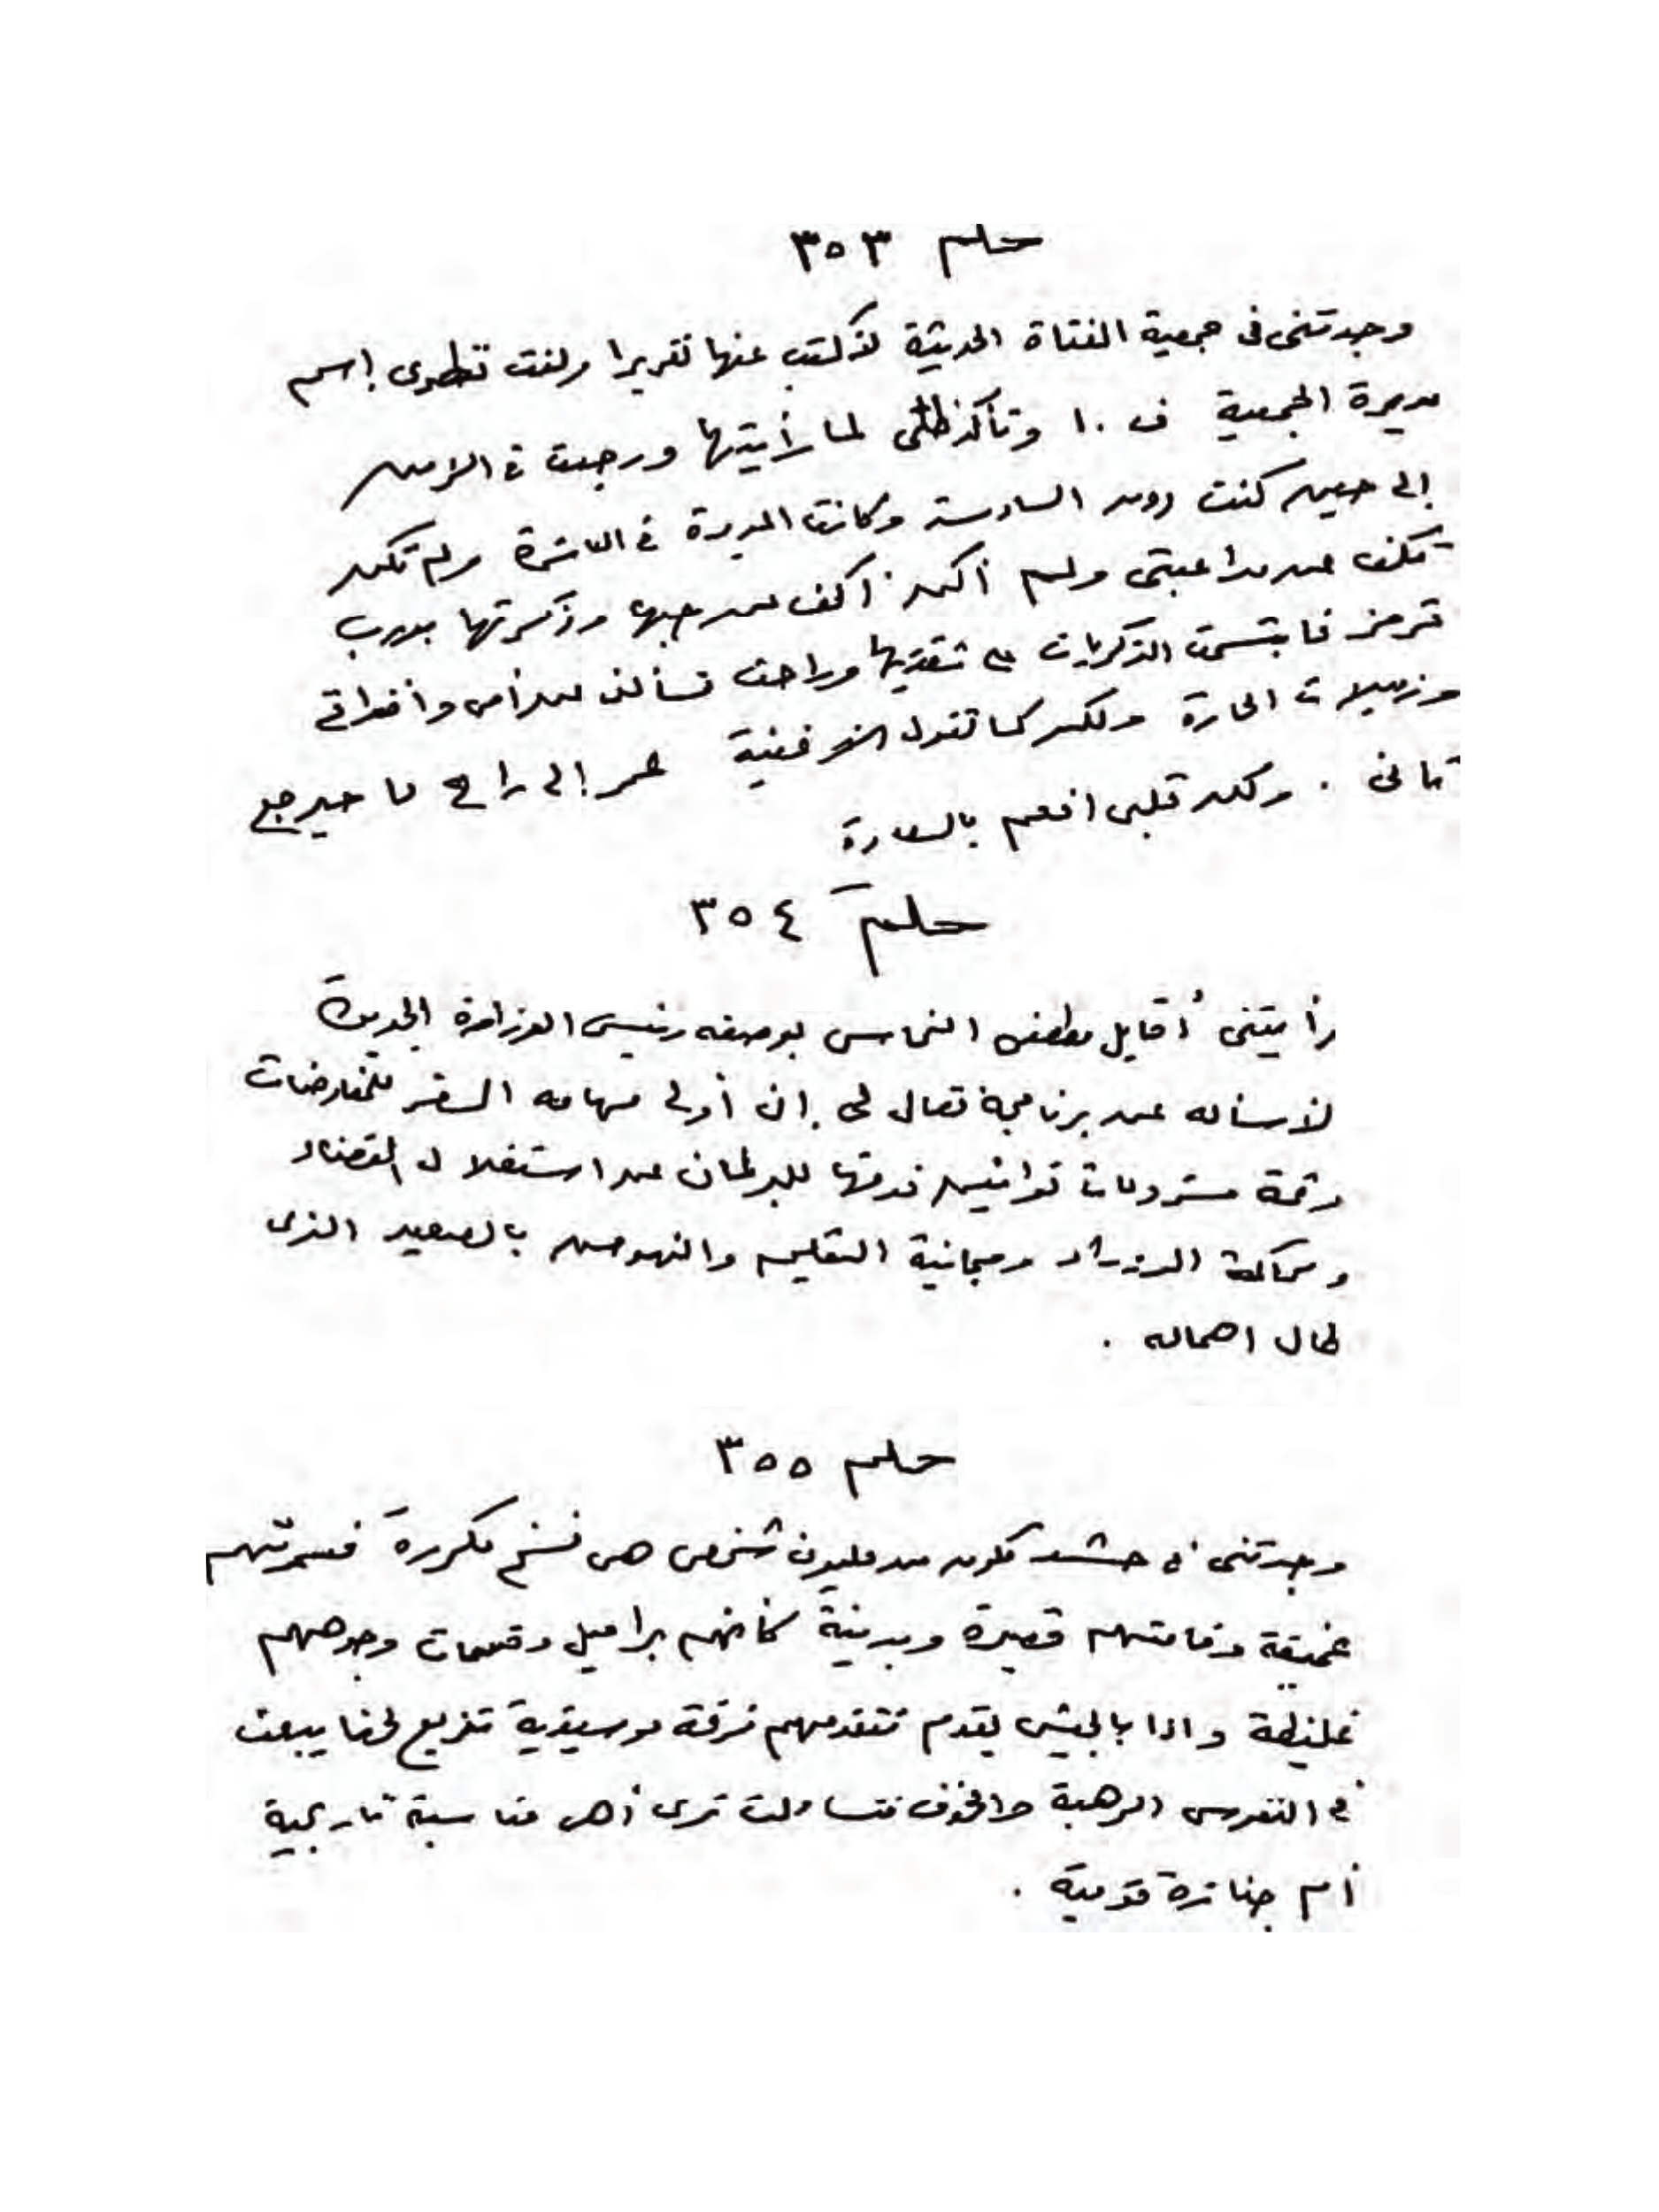 حلم ٣٥٣
وجدتنى فى جمعية الفتاة الحديثة لأكتب عنها تقريرا ولفت نظرى إسم
مديرة الجمعية ف ١٠ وتأكد ظنى لما رأيتها ورجعت فى الزمن
إلى حين كنت دون السادسة وكانت المديرة فى العاشرة ولم تكن
تكف عن مداعبتى ولم أكن أكف عن حبها وذكرتها بدرب
قرمز فابتسمت الذكريات على شفتيها وراحت تسألنى عن أمى وأخواتى
وزميلات الحارة ولكن كما تقول الأغنية عمر إلى راح ما حيرجع
تانى . ولكن قلبى افعم بالسعادة
حلم ٣٥٤
رأيتنى أقابل مصطفى النحاس بوصفه رئيس الوزارة الجديدة
لأسأله عن برنامجه فقال لى إن أولى مهامه السفر للمفاوضات
وثمة مشروعات قوانين قدمتها للبرلمان عن استقلال القضاء
ومحاكمة الوزراء ومجانية التعليم والنهوض بالصعيد الذى
طال اهماله .
حلم ٣٥٥
وجدتنى فى حشد مكون من مليون شخص هى نسخ مكررة فسمرتهم
عميقة وقامتهم قصيرة وبدينة كأنهم براميل وقسمات وجوههم
غليظة واذا بالجيش يقدم تتقدمهم فرقة موسيقية تذيع لحنا يبعث
فى النفوس الرهبة والخوف فتساءلت ترى أهى مناسبة تاريخية
أم جنازة قومية .